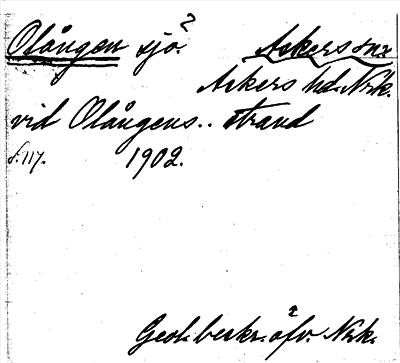 Olången sjö? Askers sn
Askers hd. Nrk.
vid Olångens.. strand
s. 117. 1902.
Geol. beskr. öfv. Nrk.